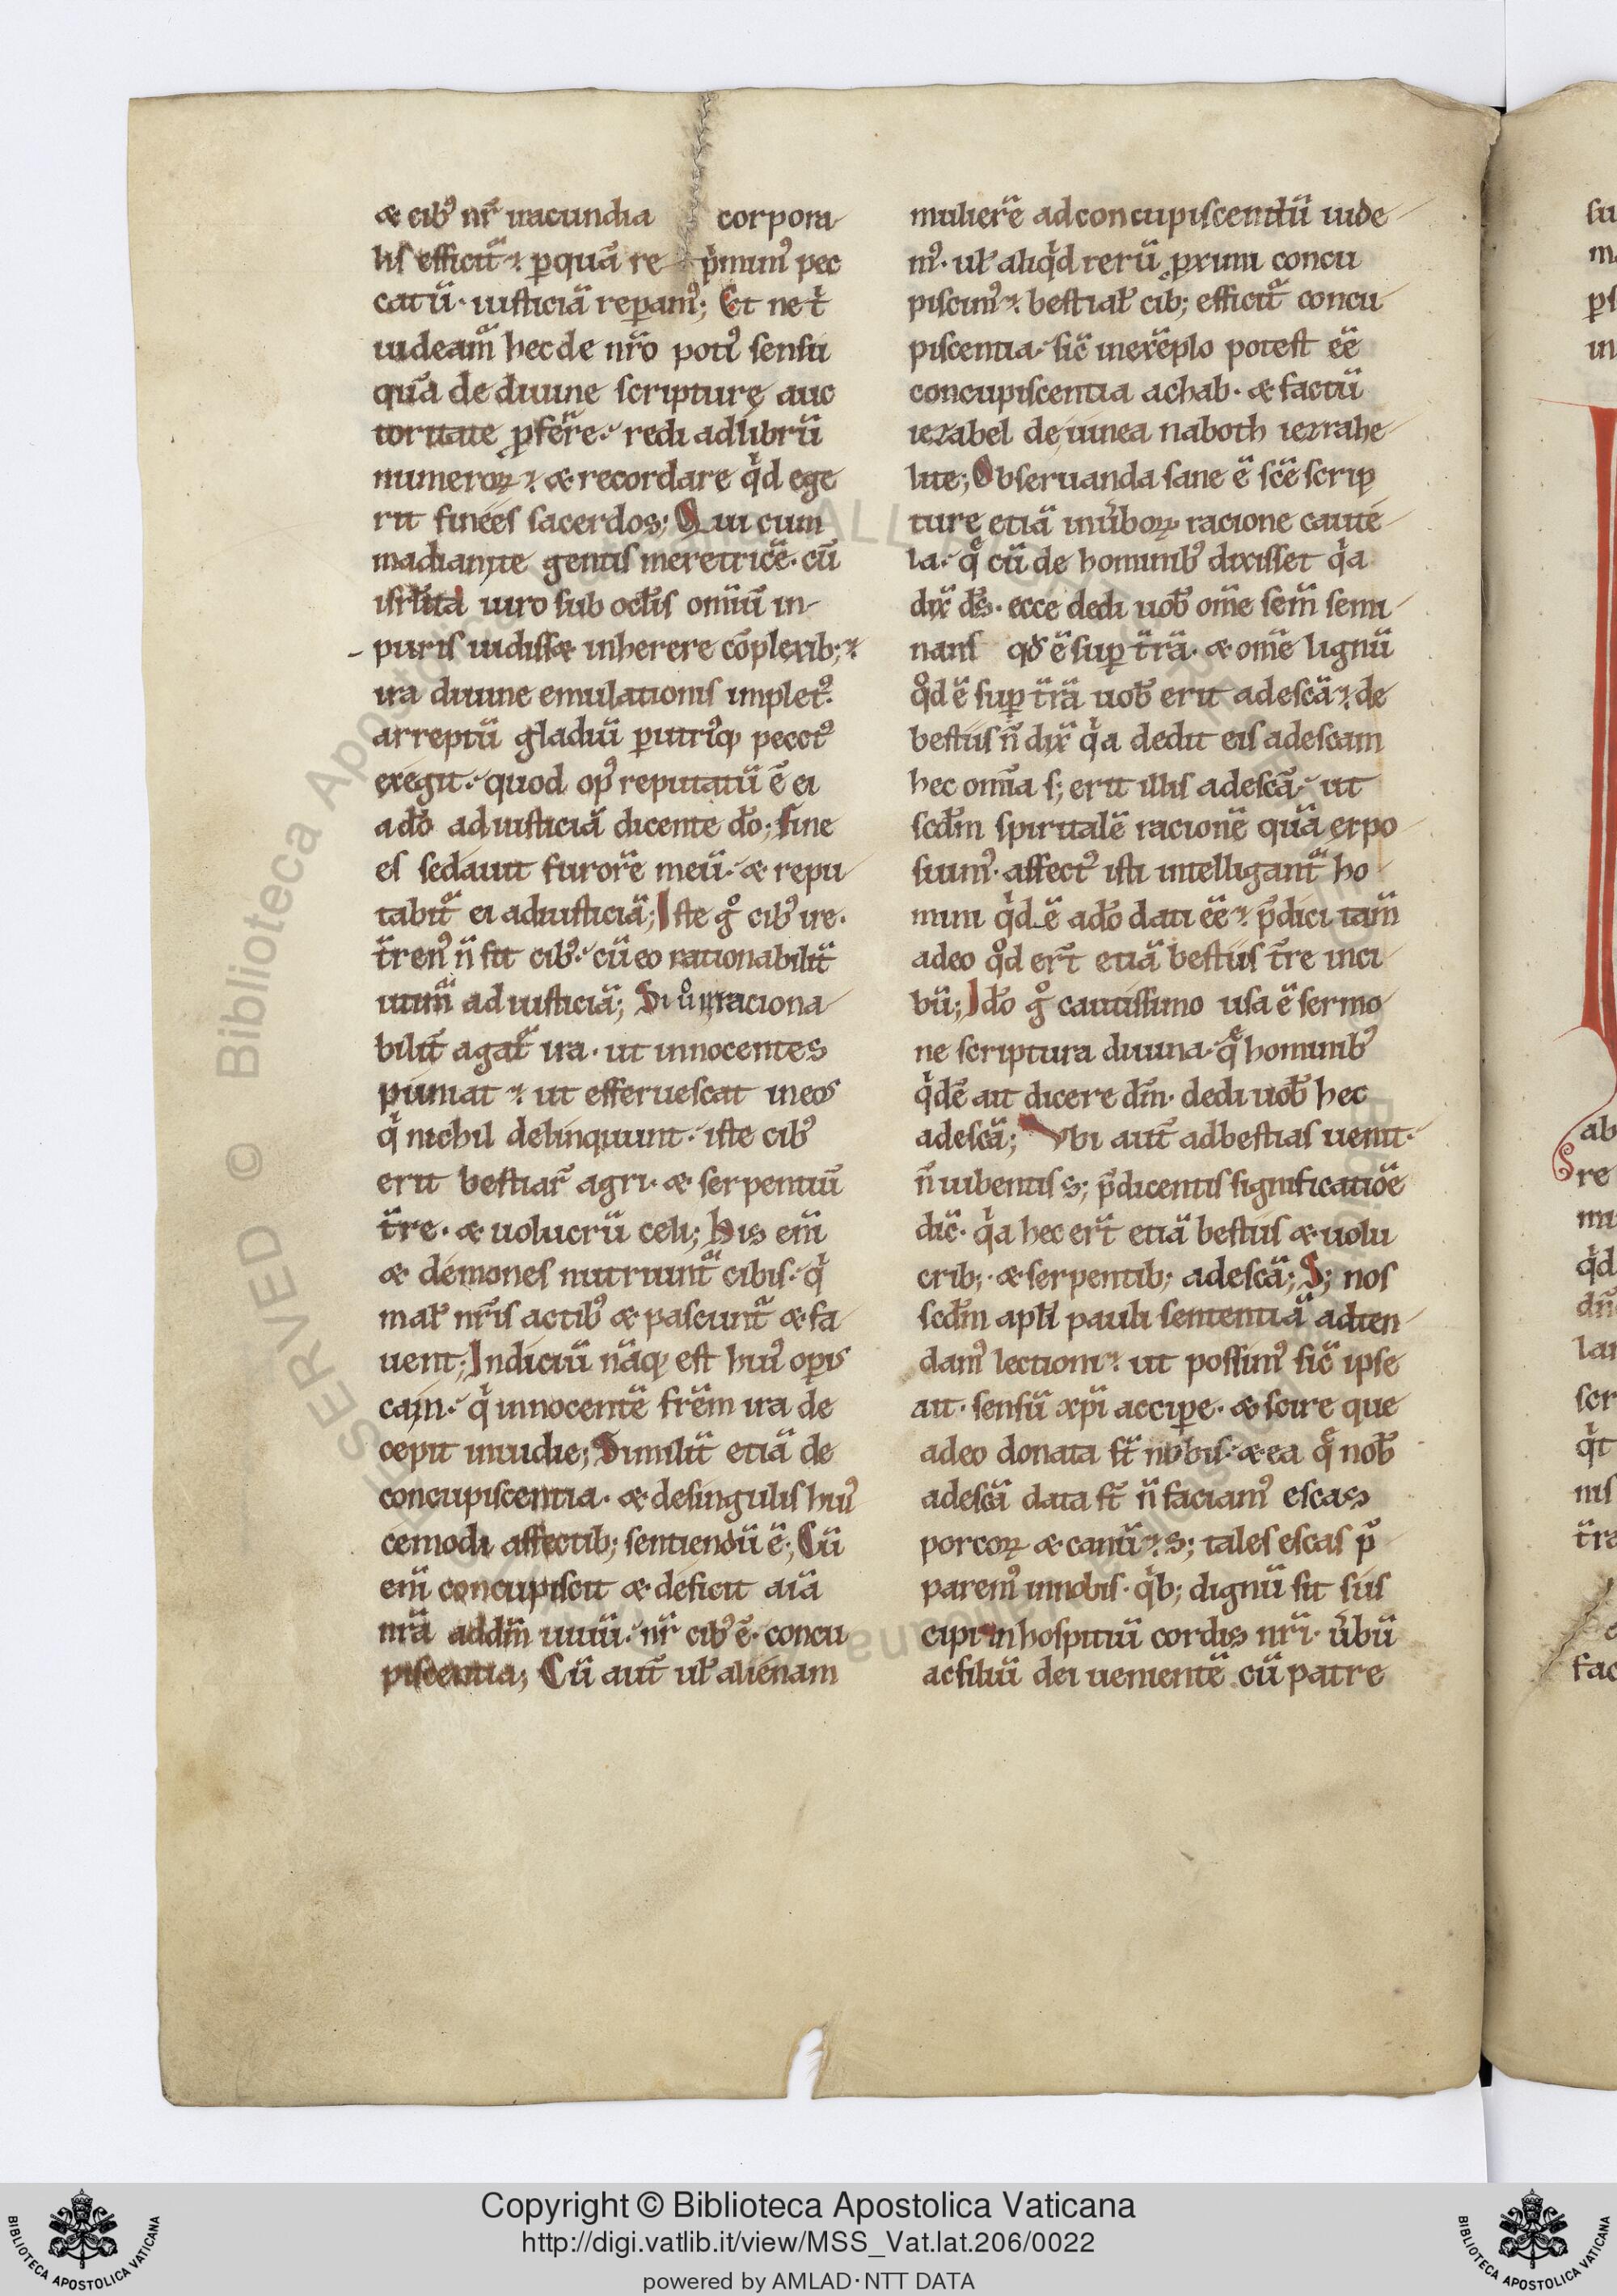 & cibꝰ nr̄ iracundia corpora-
lis efficit᷑ ⁊ ꝑquā re p̍mimꝰ pec
catū· iusticiā reꝑamꝰ; Et ne t̍
uideam᷑ hec de nr̄o potiꝰ sensu
quā de diuine scripture auc
toritate ꝓferr̄e· redi ad librū
numeroꝝ ⁊ & recordare q̍d ege
rit finees sacerdos; Qui cum
madianite gentis meretricē· cū
isrl̄ita uiro sub ocl̄is omiū in-
puris uidiss& inherere cōplexib;
ira diuine emulationis impletꝰ·
arreptū gladiū ꝑ utriꝰq; pectꝰ
exegit· quod opꝰ reputatū ē ei
a do̅ ad iusticiā dicente do̅; fine
es sedauit furorē meū· & repu
tabit᷑ ei ad iusticiā; Iste g̊ cibꝰ ire·
t̄renꝰ n̄ fit cibꝰ· cū eo rationabilit̄
utim᷑ ad iusticiā; Si ů irraciona-
bilit̄ agat᷑ ira· ut innocentes
puniat ⁊ ut efferuescat in eos
q̍ nichil delinquunt· iste cibꝰ
erit bestiar̄ agri· & serpentiū
t̄re· & uolucrū celi; His em̄
& demones nutriunt᷑ cibis· q̍
mal̄ nr̄is actibꝰ & pascunt᷑ & fa-
uent; Indiciū nāq; est huiꝰ oꝑis
cain· q̍ innocentē frēm ira de
cepit inuidie; Similit̄ etiā de
concupiscentia· & de singulis huiꝰ
cemodi affectib; sentiendū ē; Cū
em̄ concupiscit & deficit aīa
nr̄a ad dm̄ uiuū· nr̄ cibꝰ ē· concu
piscentia; Cū aut̄ ul̄ alienam
mulierē ad concupiscendū uide-
mꝰ· ul̄ aliq̍d rerū ꝓximi concu
piscimꝰ ⁊ bestial̄ cib; efficit᷑ concu-
piscentia· sic̄ in exēplo potest ēē
concupiscentia achab· & factū
iezabel de uinea naboth iezrahe-
lite; Obseruanda sane ē sc̄e scrip
ture etiā in ůboꝝ racione caute-
la· q̄ cū de hominibꝰ dixisset q̍a
dix̄ ds̄· ecce dedi uob̄ om̄e sem̄ semi-
nans qd̄ ē suꝑ t̄rā· & om̄e lignū
q̊d ē suꝑ t̄rā uob̄ erit ad escā ⁊ de
bestiis n̄ dix̄ q̍a dedit eis ad escam
hec om̄ia s; erit illis ad escā· ut
scd̄m spiritalē racionē quā expo-
suimꝰ· affectꝰ isti intelligant᷑ ho-
mini q̍dē a do̅ dati ēē ⁊ p̄dici tam̄
a deo q̊d er̄t etiā bestiis t̄re inci-
bū; Ido̅ g̊ cautissimo usa ē sermo-
ne scriptura diuina· q̄ hominibꝰ
q̍dē ait dicere dm̄· dedi uob̄ hec
ad escā; Ubi aut̄ ad bestias uenit·
n̄ iubentis s; p̄dicentis significatiōe
dic̄· q̍a hec er̄t etiā bestiis & uolu
crib;· & serpentib; ad escā; S; nos
scd̄m apl̄i pauli sententiā adten-
damꝰ lectioni ⁊ ut possimꝰ sic̄ ipse
ait· sensū xp̄i acciꝑe· & scire que
a deo donata st̄ nobis· & ea q̄ nob̄
ad escā data st̄ n̄ faciamꝰ escas
porcoꝝ & canū ⁊ s; tales escas p̄
paremꝰ in nobis· q̍b; dignū sit sus
cipi in hospitiū cordis nr̄i· ůbū
ac filiū dei uenientē cū patre
Copyright © Biblioteca Apostolica Vaticana
http://digi.vatlib.it/view/MSS_Vat.lat.206/0022
powered by AMLAD·NTT DATA